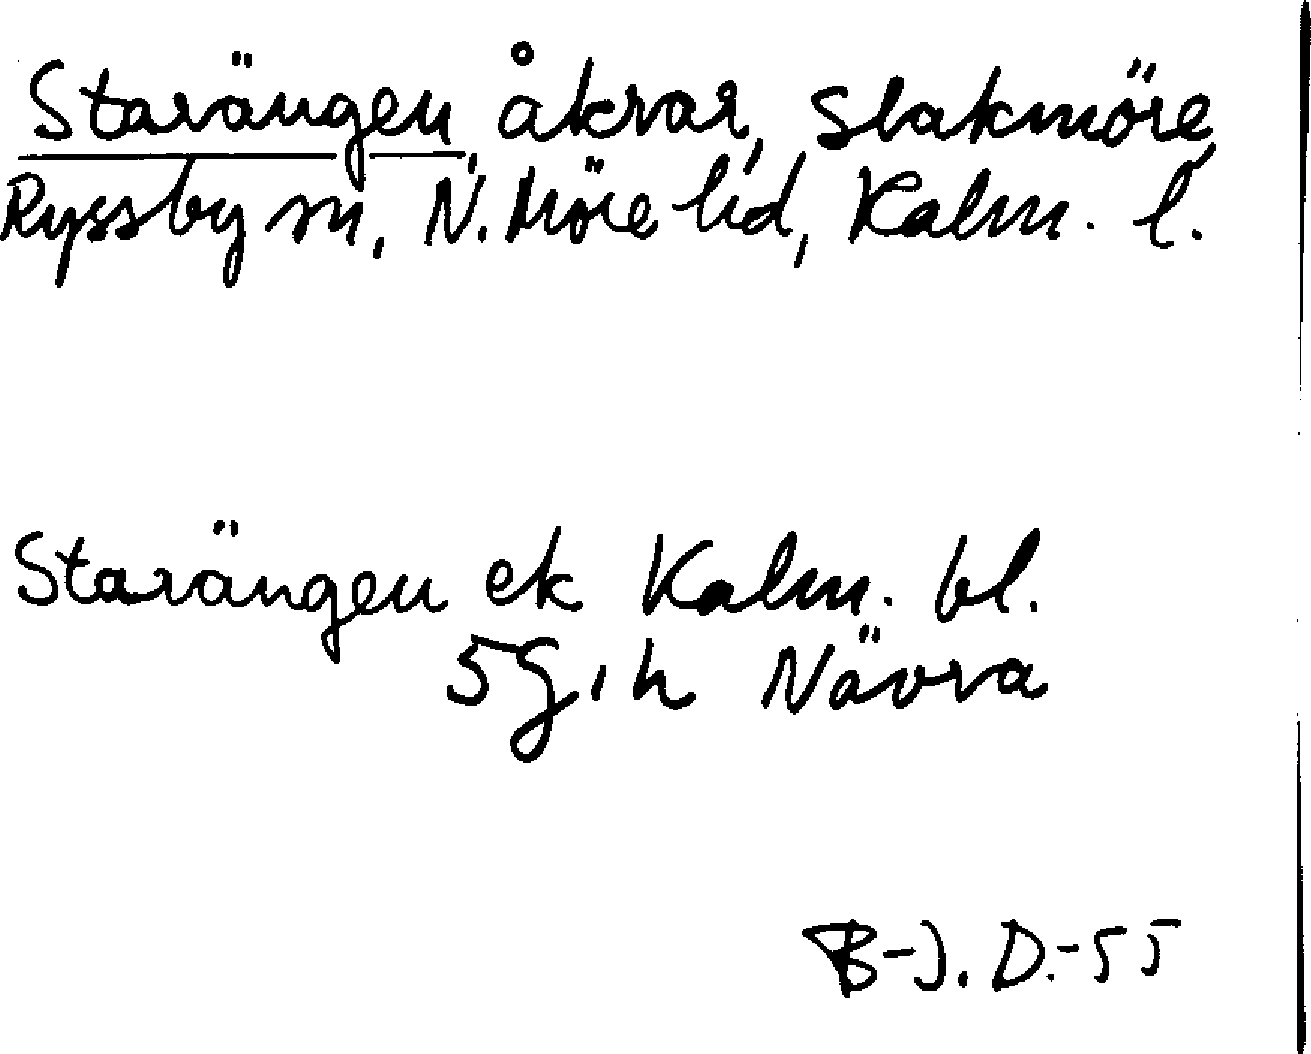 Starängen, åkrar, Slakmöre,
Ryssby sn, N. Möre hd, Kalm. l.
Starängen ek Kalm. bl.
5G, h Nävra
B-J. D.-55